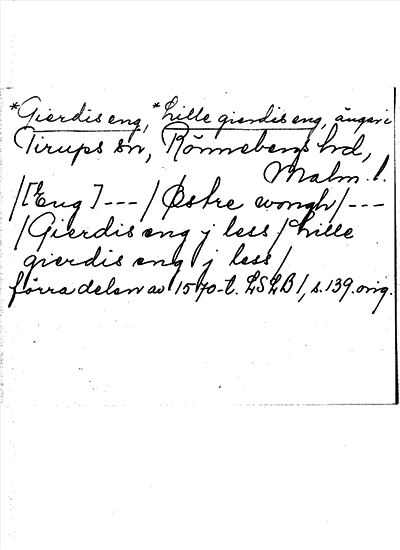 *Gierdis eng, *Lille gierdis eng, ängar i
Tirups sn, Rönnebergs hd,
Malm. l.
/[Eng] --- / Østre wongh / ---
/ Gierdis eng j less / Lille
gierdis eng j less /
förra delen av 1570-t. LSLB 1, s. 139. orig.